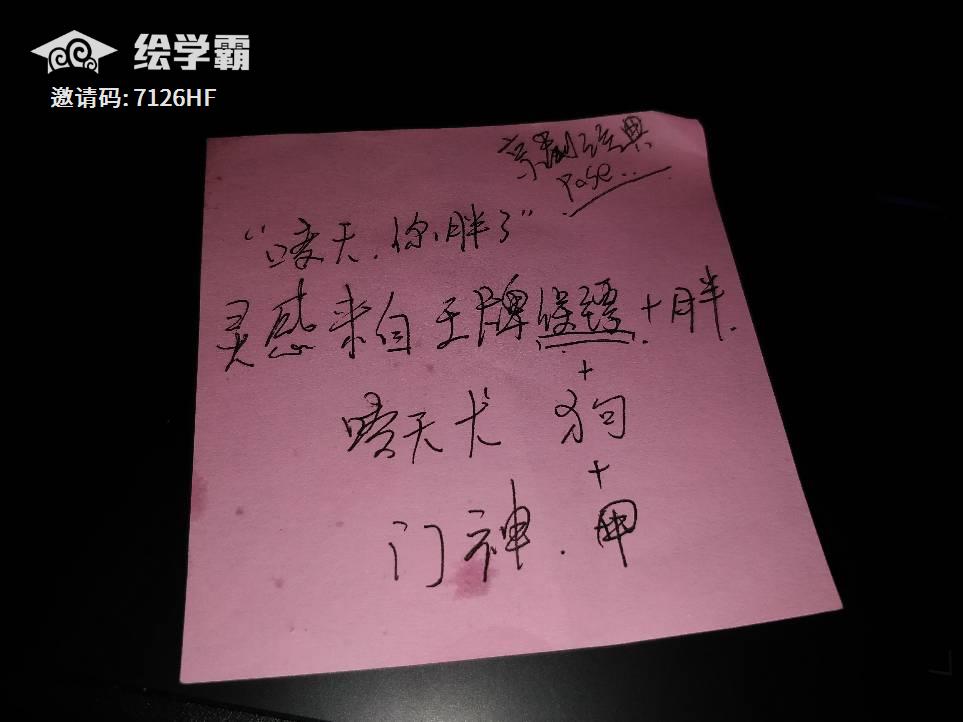 绘学霸
邀请码: 7126HF
京剧经典
Pose..
“哮天.你胖了”
灵感来自王牌保镖+胖.
+
哮天犬 狗
+
门神.甲